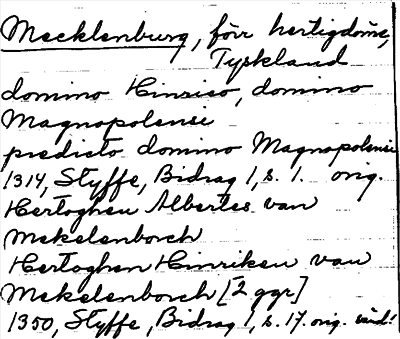 Mecklenburg, förr hertigdöme,
Tyskland
domino Hinrico, domino
Magnopolensi
predicto domino Magnopolensi
1314, Styffe, Bidrag 1, s. 1. orig.
Hertoghen Albertes van
Mekelenborch
Hertoghen Hinriken van
Mekelenborch [2 ggr]
1350, Styffe, Bidrag 1, s. 17. orig.